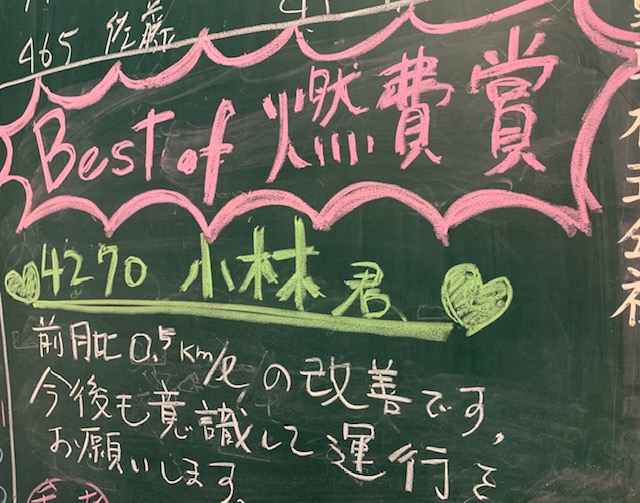 465 佐藤
Best of 燃費賞
4270 小林君
前月比0.5km/ℓの改善です,
今後も意識して運行を
お願いします。